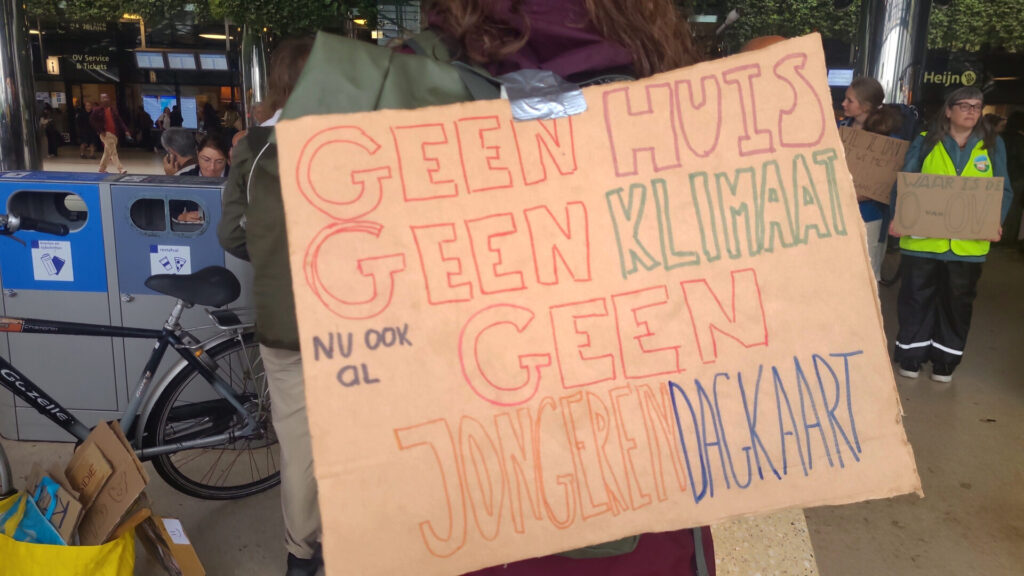 OV Service
& Tickets
Heijn
GEEN HUIS
GEEN KLIMAAT
NU OOK
AL
GEEN
JONGEREN DAGKAART
WAAR IS DE
VAN
OV
restafval
Gazelle